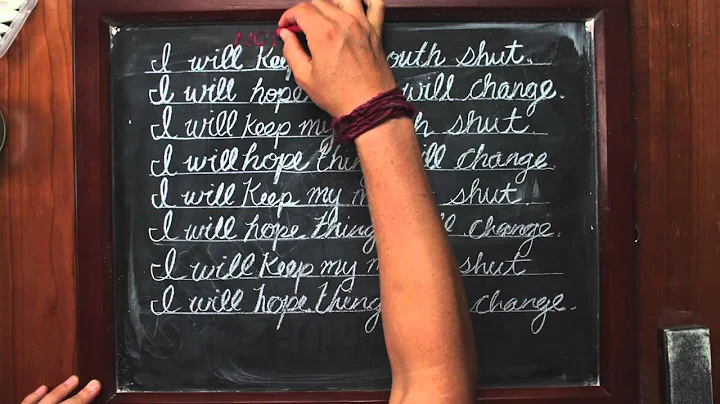 NOT
I will Keep mouth shut.
I will hope will change.
I will keep my mouth shut
I will hope things will change.
I will Keep my mouth shut.
I will hope things will change.
I will Keep my mouth shut
I will hope things change.